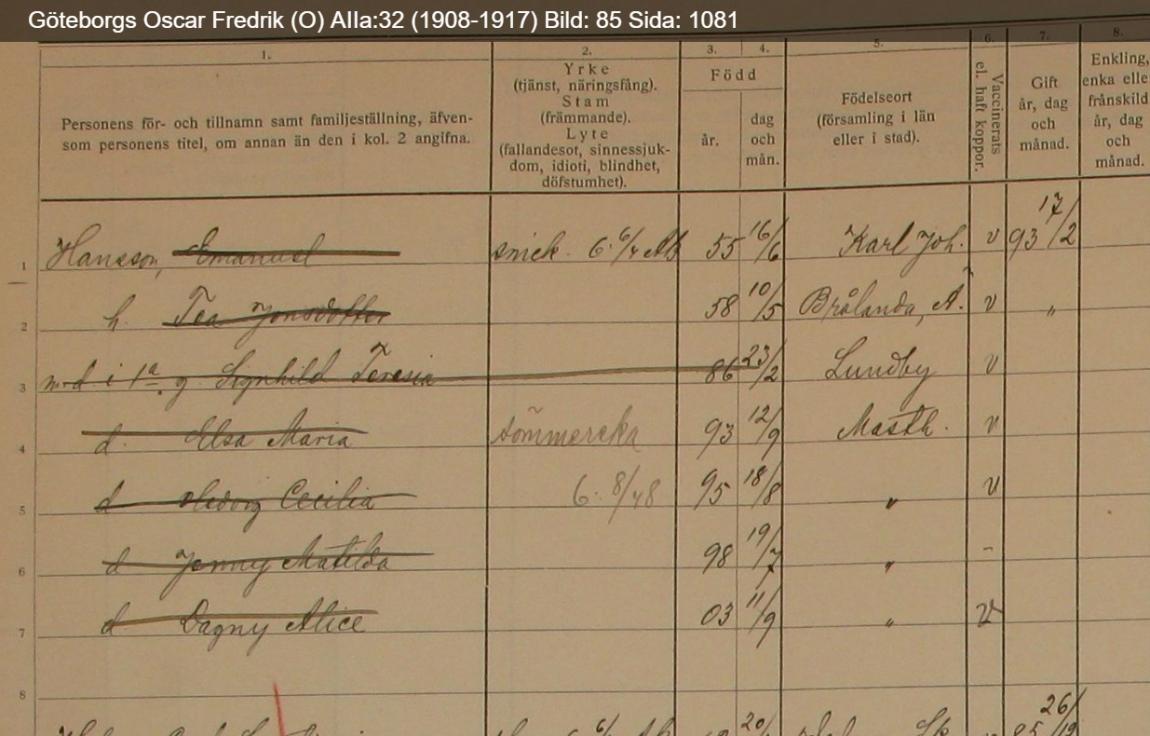 Göteborgs Oscar Fredrik (O) AIIa:32 (1908-1917) Bild: 85 Sida: 1081
1. 2. 3. 4. 5. 6. 7. 8.
Personens för- och tillnamn samt familjeställning, äfven-
som personens titel, om annan än den i kol. 2 angifna.
Yrke
(tjänst, näringsfång).
Stam
(främmande).
Lyte
(fallandesot, sinnessjuk-
dom, idioti, blindhet,
döfstumhet).
Född
år.
dag
och
mån.
Födelseort
(församling i län
eller i stad).
Vaccinerats
el. haft koppor.
Gift
år, dag
och
månad.
Enkling,
enka elle
frånskild
år, dag
och
månad.
1 Hansson, Emanuel snick. 55 16/6 Karl Joh. v 93 17/2
2 h. Tea Jonsdotter 58 10/5 Brålanda, Ä. v "
3 m-d i 1a g. Signhild Teresia 86 23/2 Lundby v
4 d. Elsa Maria sömmerska 93 12/9 Masth. v
5 d Hedvig Cecilia 6. 8/48 95 18/8 " v
6 d Jenny Matilda 98 19/7 " -
7 d Dagny Alice 03 11/9 " v
8
20/ 26/